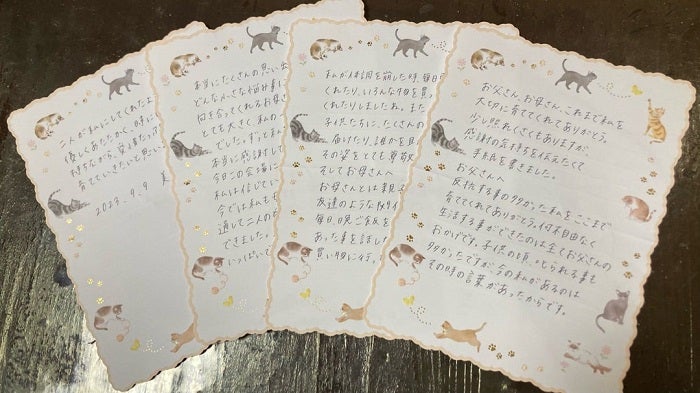 お父さん、お母さん、これまで私を
大切に育ててくれてありがとう。
少し照れくさくもありますが
感謝の気持ちを伝えたくて
手紙を書きました。
お父さんへ
反抗する事の多かった私をここまで
育ててくれてありがとう。何不自由なく
生活する事ができたのは全てお父さんの
おかげです。子供の頃、しかられる事も
多かったですが、今の私があるのは
その時の言葉があったからです。
私が体調を崩した時、毎日
くれたり、いろんな物を買っ
くれたりしましたね。また
子供たちに、たくさんの
届けたり、誰かを
その姿をとても尊敬
そしてお母さんへ
お母さんとは親子
友達のような
毎日、晩ご飯を
あった事を話し
買い物に行
本当にたくさんの思い出
どんな小さな悩み事に
向き合ってくれるお母さ
とても大きく私の
でした。ずっと私
本当に感謝して
今日この会場に
私は信じてい
今では私も
通して二人の
できました。
いっぱいで
二人が私にしてくれたよ
優しくあたたかく、時に
持ちながら、
育てていきたいと思い
2023.9.9